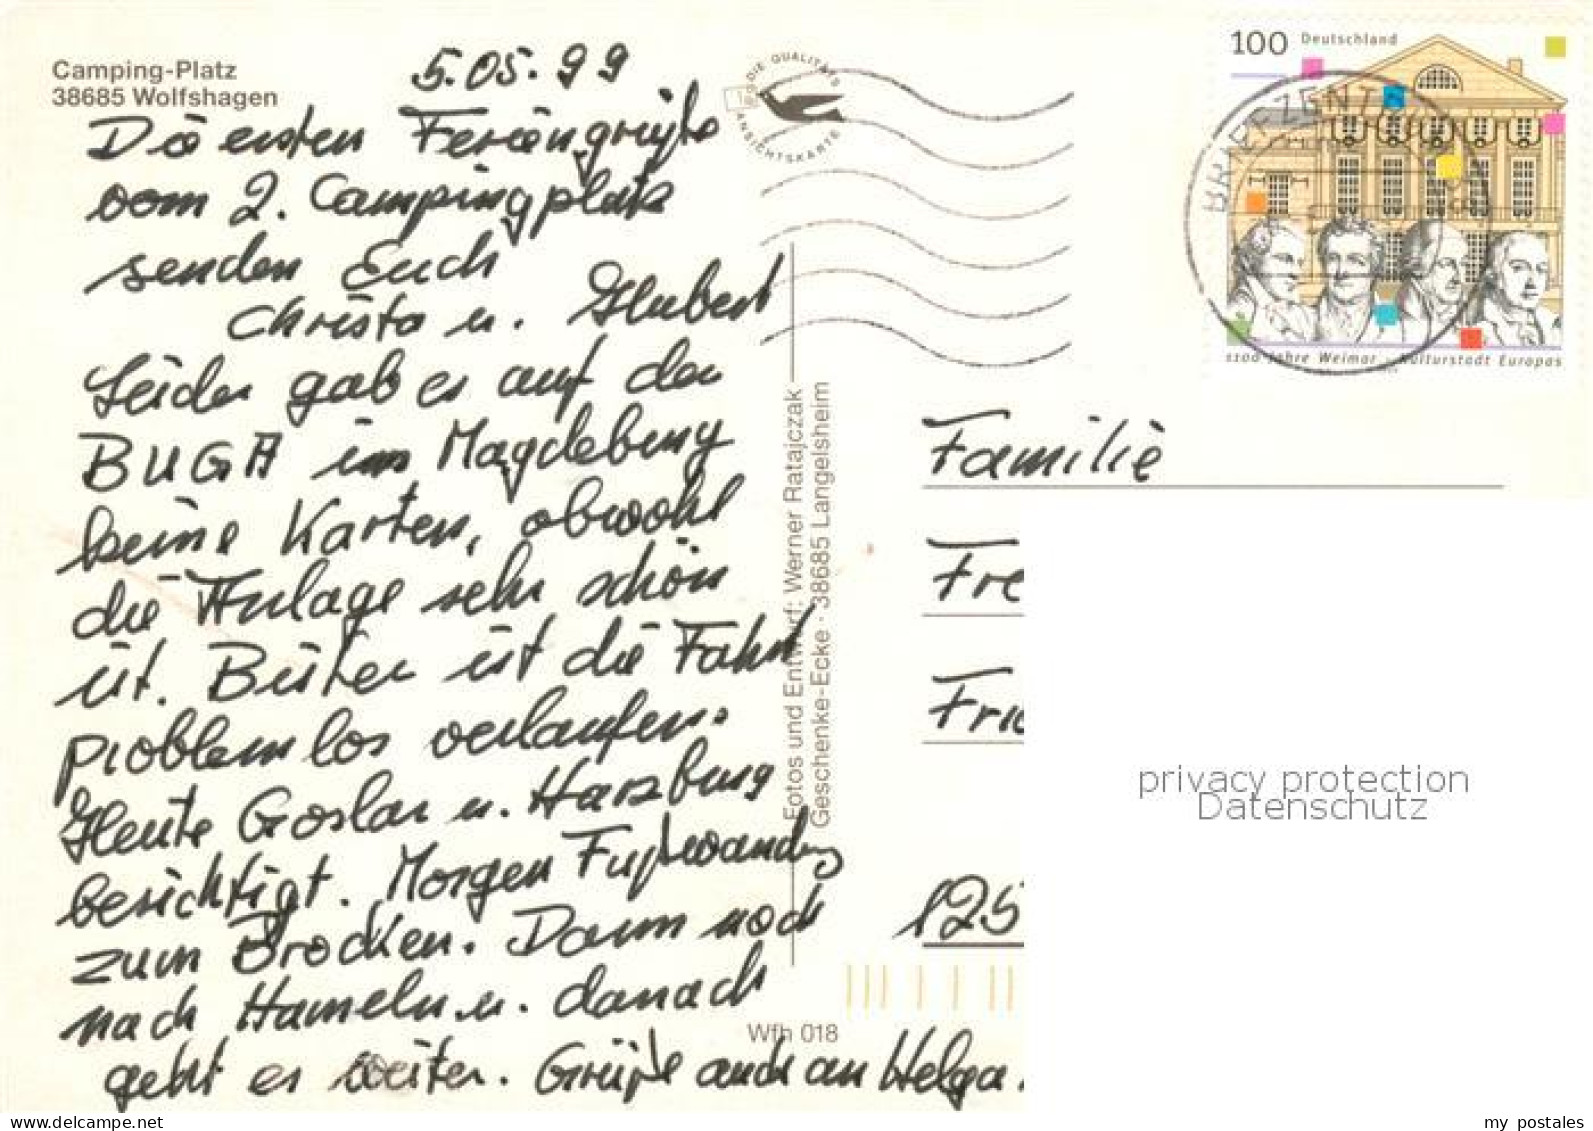 Camping-Platz
38685 Wolfshagen
5.05.99
Die ersten Feriengrüße
vom 2. Campingplatz
senden Euch
Christa u. Hubert
Leider gab es auf der
BUGA in Magdeburg
keine Karten, obwohl
die Anlage sehr schön
ist. Bisher ist die Fahrt
problemlos verlaufen.
Heute Goslar u. Harzburg
besichtigt. Morgen Fußwandrg
zum Brocken. Dann noch
nach Hameln u. danach
geht es weiter. Grüße auch an Helga.
DIE QUALITÄTS
ANSICHTSKARTE
Fotos und Entwurf: Werner Ratajczak
Geschenke-Ecke · 38685 Langelsheim
Wfh 018
100 Deutschland
BRIEFZENTRUM
1100 Jahre Weimar – Kulturstadt Europas
Familie
Fre
Frie
125
privacy protection
Datenschutz
www.delcampe.net
my_postales